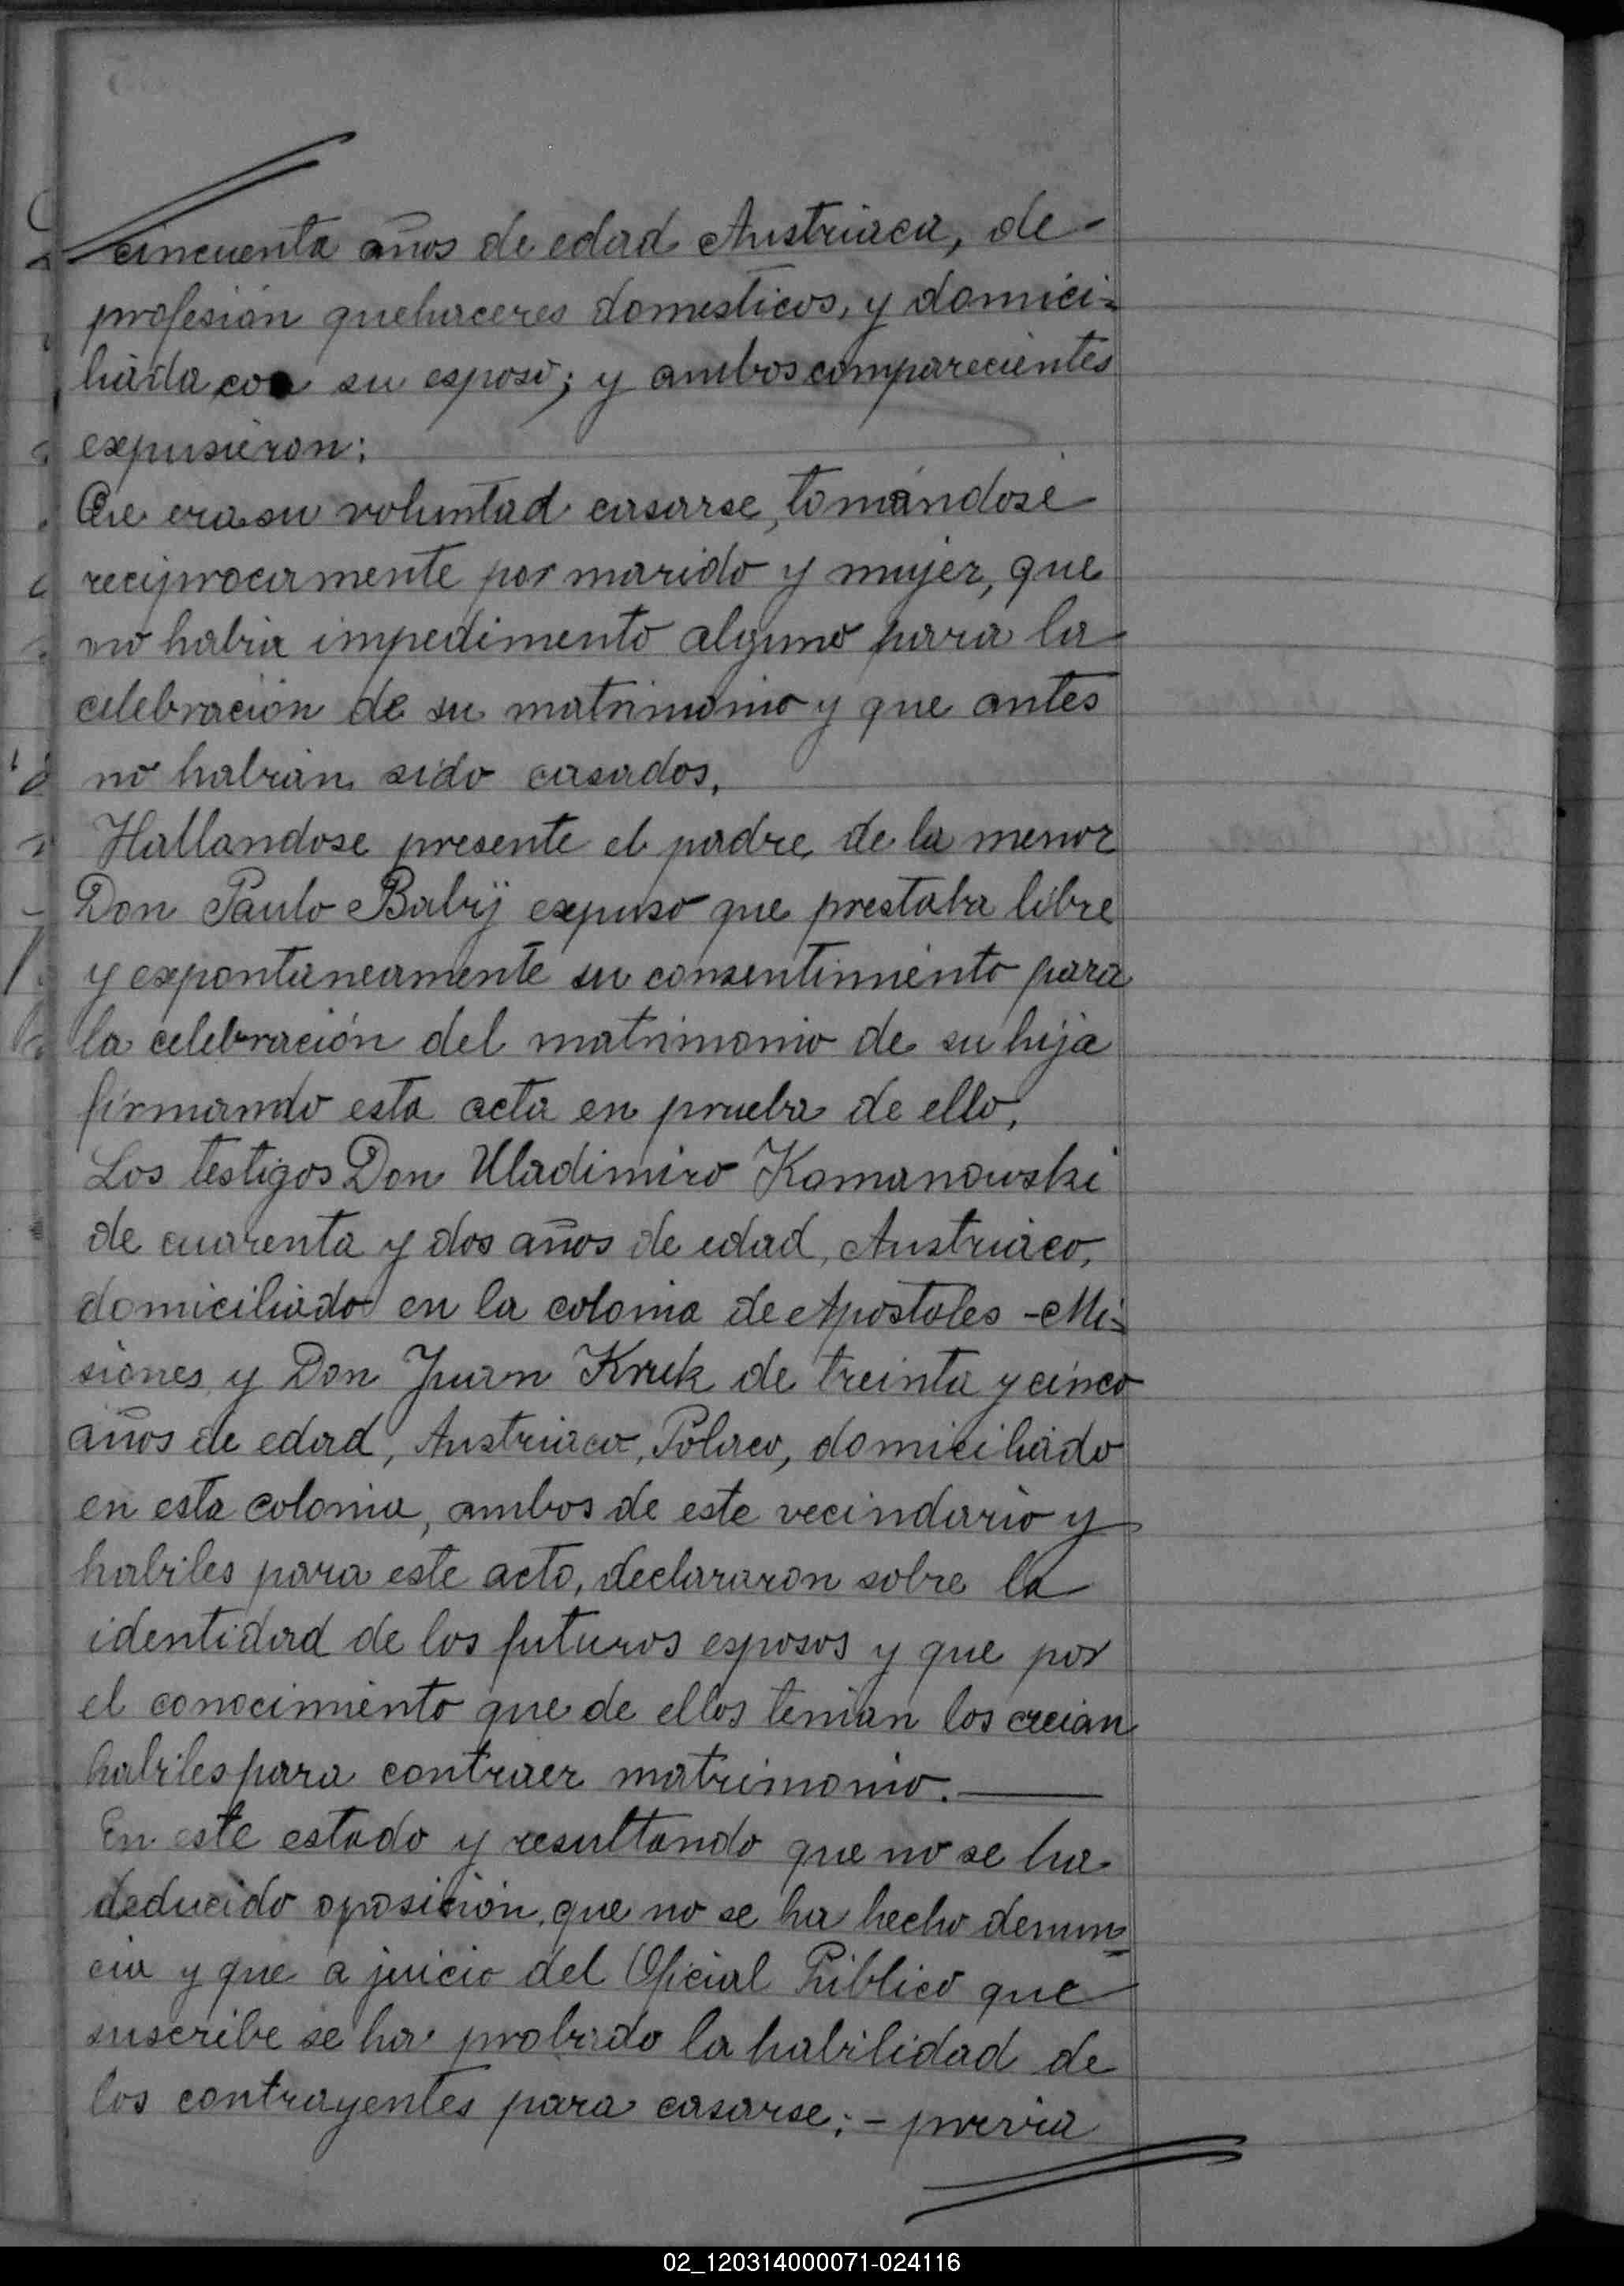 cincuenta años de edad Austriaca, de-
profesión quehaceres domesticos, y domici=
liada con su esposo; y ambos comparecientes
expusieron:
Que era su voluntad casarse, tomándose
reciprocamente por marido y mujer, que
no habia impedimento alguno para la
celebración de su matrimonio y que antes
no habian sido casados.
Hallandose presente el padre de la menor
Don Paulo Babij expuso que prestaba libre
y expontaneamente su consentimiento para
la celebración del matrimonio de su hija
firmando esta acta en prueba de ello.
Los testigos Don Uladimiro Komanowski
de cuarenta y dos años de edad, Austriaco,
domiciliado en la colonia de Apostoles - Mi=
siones y Don Juan Kruk de treinta y cinco
años de edad, Austriaco, Polaco, domiciliado
en esta colonia, ambos de este vecindario y
habiles para este acto, declararon sobre la
identidad de los futuros esposos y que por
el conocimiento que de ellos tenian los creian
habiles para contraer matrimonio.
En este estado y resultando que no se ha
deducido oposición, que no se ha hecho denun=
cia y que a juicio del Oficial Público que
suscribe se ha probado la habilidad de
los contrayentes para casarse; - previa
02_120314000071-024116